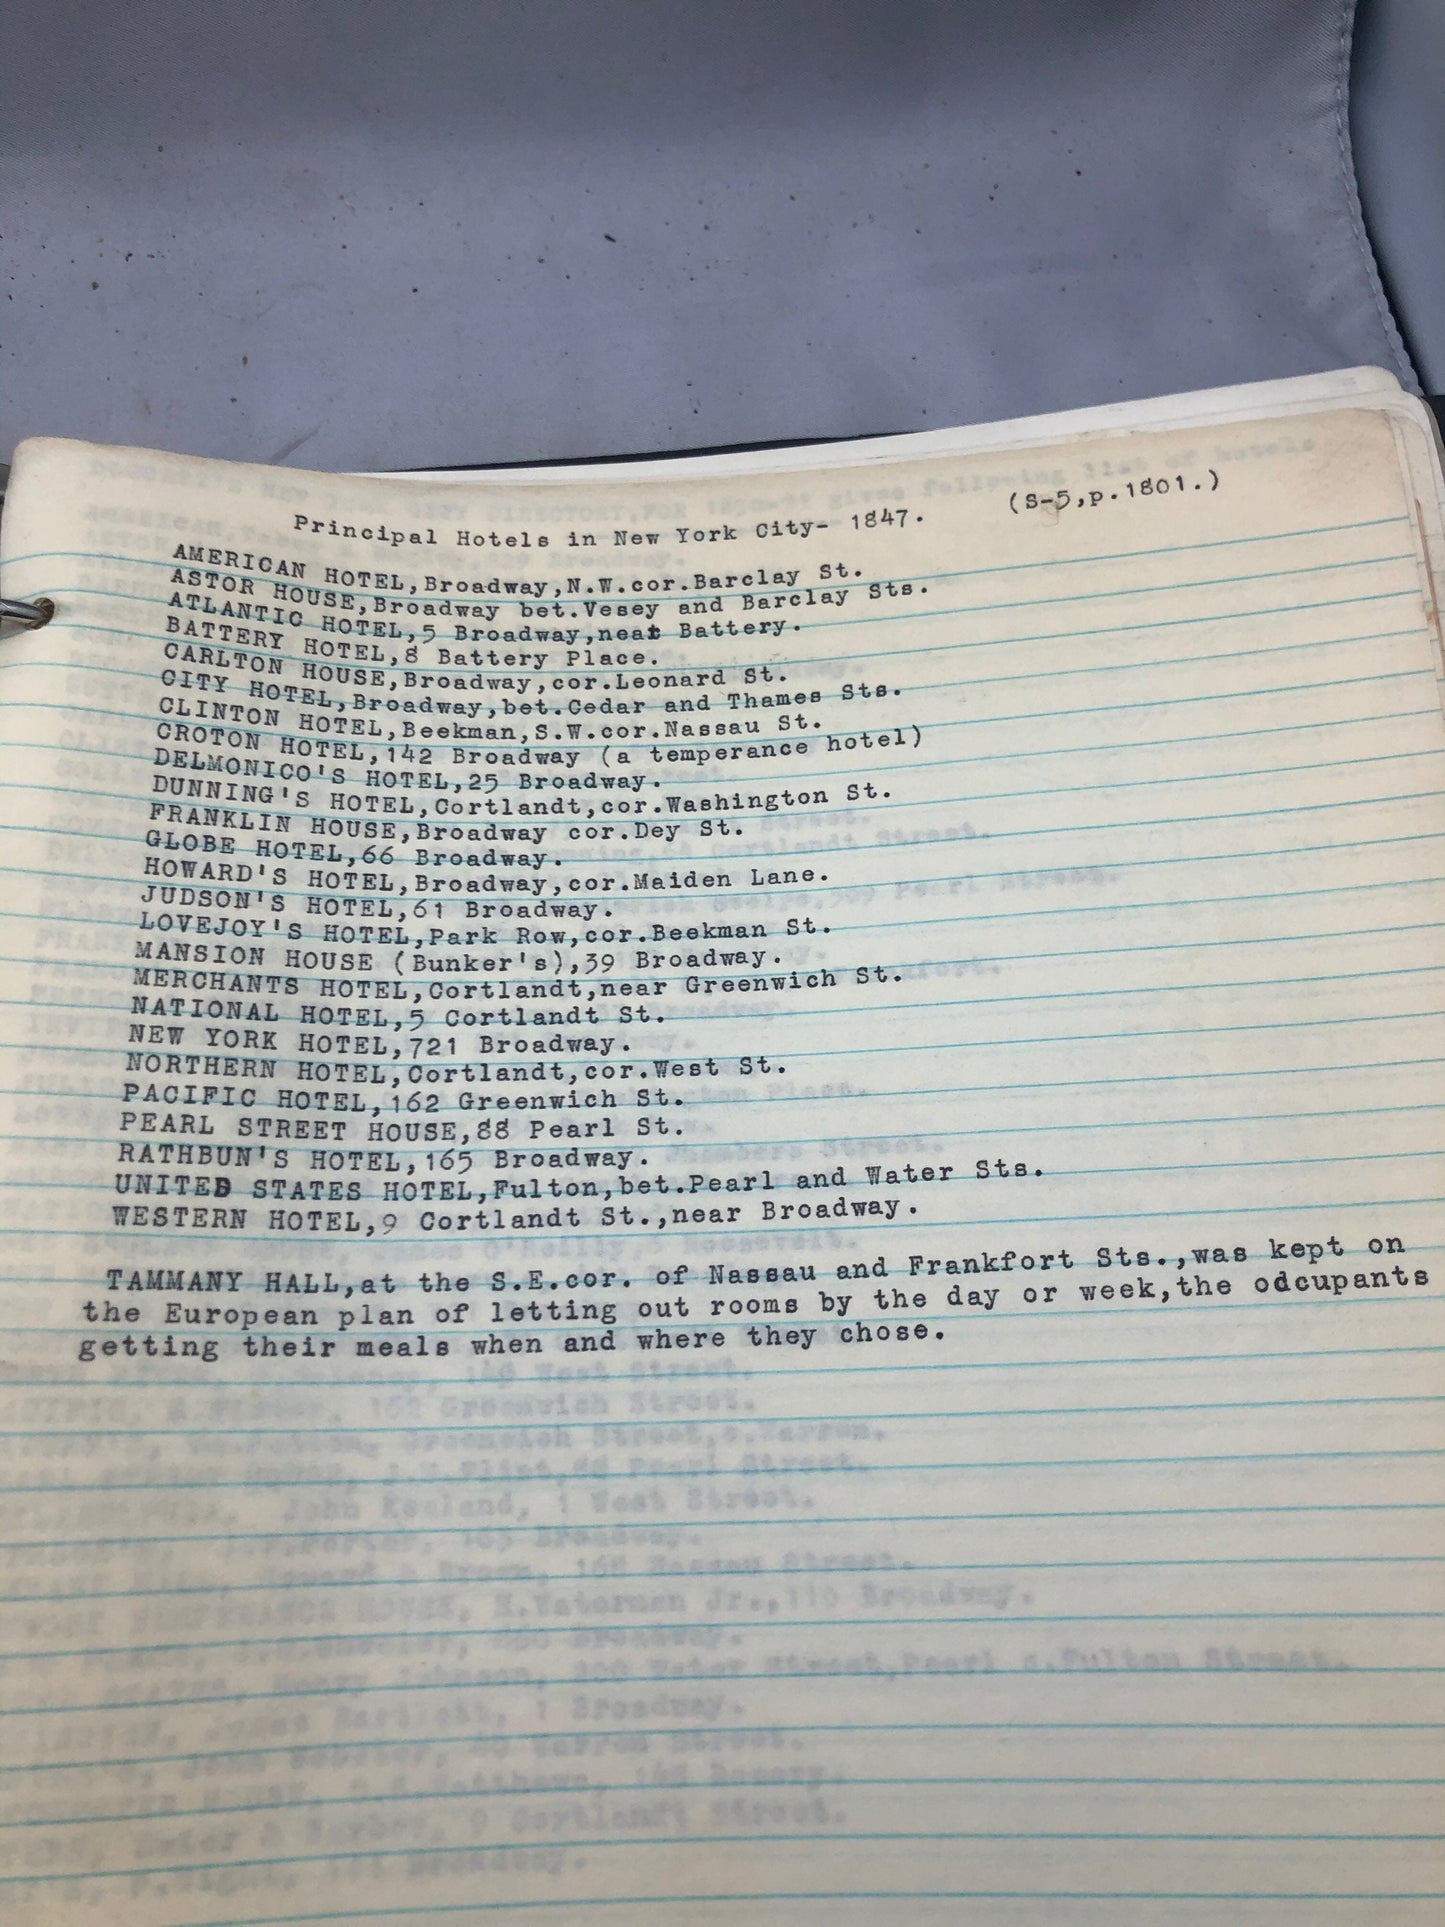 Principal Hotels in New York City- 1847. (S-5,p.1801.)
AMERICAN HOTEL,Broadway,N.W.cor.Barclay St.
ASTOR HOUSE,Broadway bet.Vesey and Barclay Sts.
ATLANTIC HOTEL,5 Broadway,near Battery.
BATTERY HOTEL,8 Battery Place.
CARLTON HOUSE,Broadway,cor.Leonard St.
CITY HOTEL,Broadway,bet.Cedar and Thames Sts.
CLINTON HOTEL,Beekman,S.W.cor.Nassau St.
CROTON HOTEL,142 Broadway (a temperance hotel)
DELMONICO'S HOTEL,25 Broadway.
DUNNING'S HOTEL,Cortlandt,cor.Washington St.
FRANKLIN HOUSE,Broadway cor.Dey St.
GLOBE HOTEL,66 Broadway.
HOWARD'S HOTEL,Broadway,cor.Maiden Lane.
JUDSON'S HOTEL,61 Broadway.
LOVEJOY'S HOTEL,Park Row,cor.Beekman St.
MANSION HOUSE (Bunker's),39 Broadway.
MERCHANTS HOTEL,Cortlandt,near Greenwich St.
NATIONAL HOTEL,5 Cortlandt St.
NEW YORK HOTEL,721 Broadway.
NORTHERN HOTEL,Cortlandt,cor.West St.
PACIFIC HOTEL,162 Greenwich St.
PEARL STREET HOUSE,88 Pearl St.
RATHBUN'S HOTEL,165 Broadway.
UNITED STATES HOTEL,Fulton,bet.Pearl and Water Sts.
WESTERN HOTEL,9 Cortlandt St.,near Broadway.
TAMMANY HALL,at the S.E.cor. of Nassau and Frankfort Sts.,was kept on
the European plan of letting out rooms by the day or week,the odcupants
getting their meals when and where they chose.